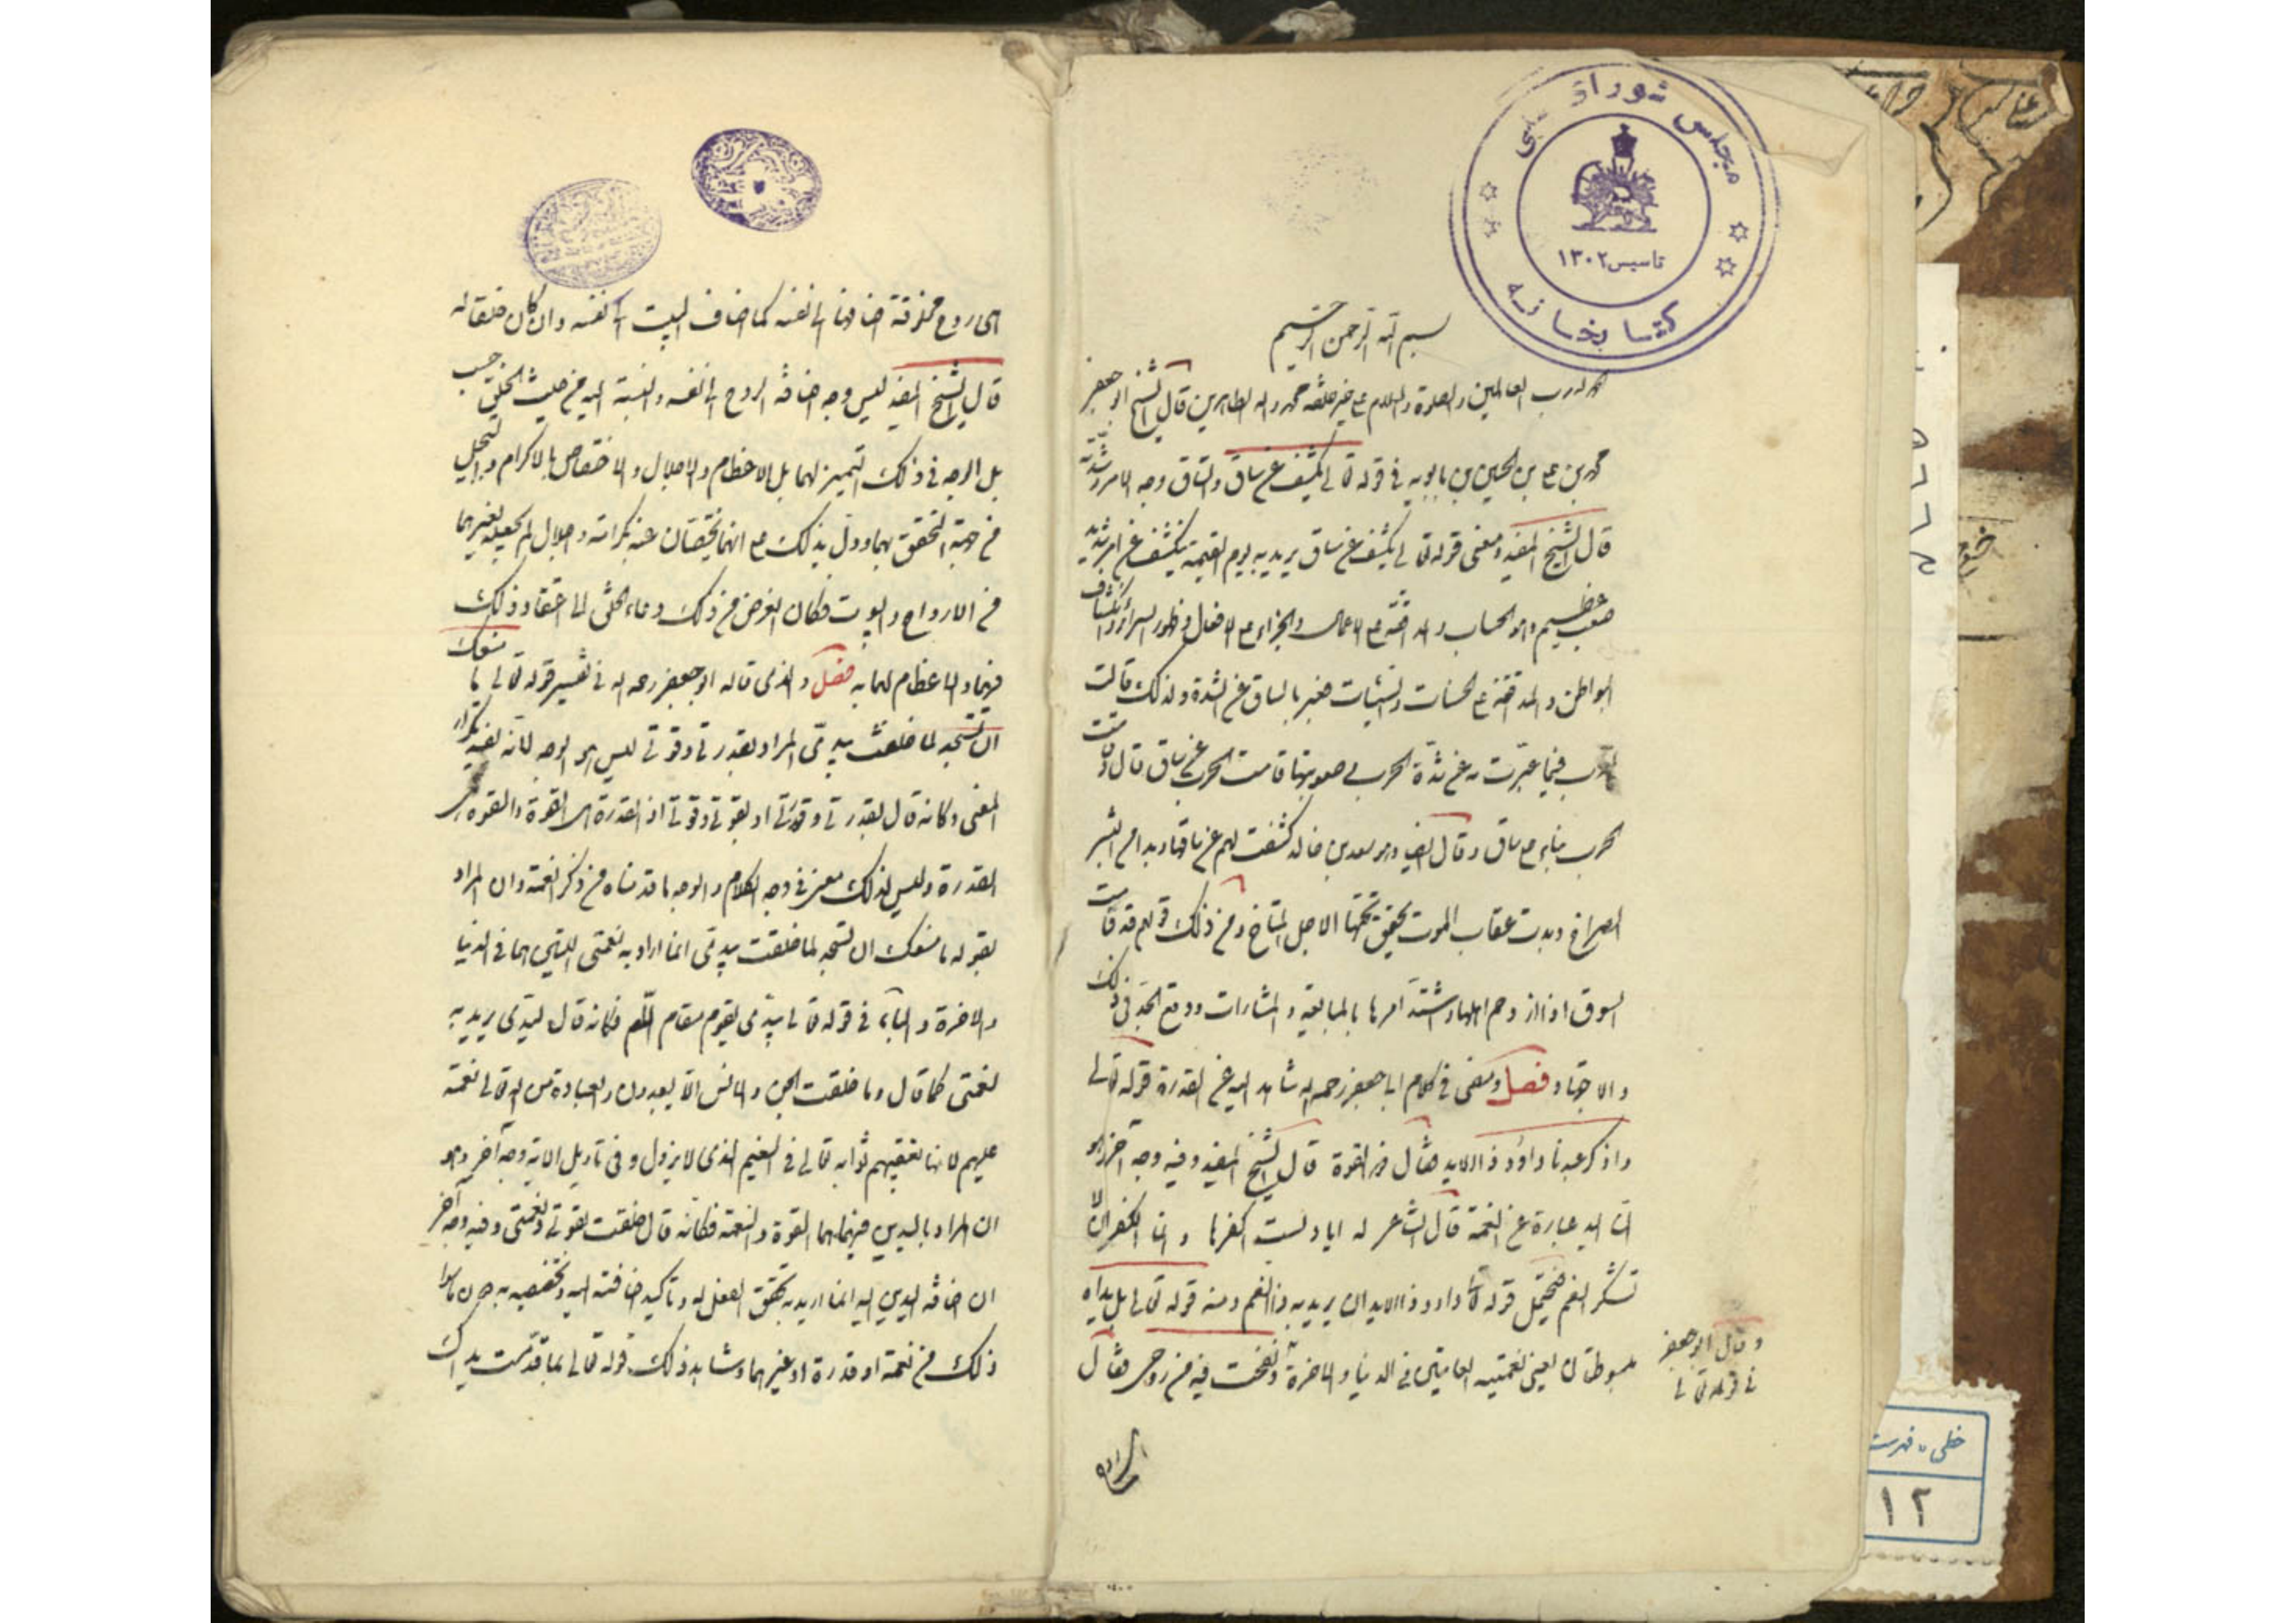 مجلس شورای ملی
تاسیس ۱۳۰۲
کتابخانه
بسم الله الرحمن الرحیم
الحمد لله رب العالمین والصلوة والسلام علی خیر خلقه محمد واله الطاهرین قال الشیخ ابو جعفر
محمد بن علی بن الحسین بن بابویه فی قوله تعالی یکشف عن ساق والساق وجه الامر وشدته
قال الشیخ المفید ومعنی قوله تعالی یکشف عن ساق یرید به یوم القیمة ینکشف عن امر شدید
صعب عظیم وهو الحساب والمداقة علی الاعمال والجزاء علی الافعال وظهور السرائر وانکشاف
البواطن والمداقة علی الحسنات والسیئات فعبر بالساق عن الشدة ولذلک قالت
العرب فیما عبرت به عن شدة الحرب وصعوبتها قامت الحرب عن ساق قال وقامت
الحرب بنا علی ساق وقال ایضا وهو سعد بن خالد کشفت لهم عن ساقها وبدا من الشر
الصراح وبدت عقاب الموت یخفق تحتها الاجل المتاح ومن ذلک قولهم قد قامت
السوق اذا ازدحم اهلها واشتد امرها بالمبایعة والمشارات ووقع الجد فی ذلک
والاجتهاد فصل ومضی فی کلام ابی جعفر رحمه الله شاهد الید عن القدرة قوله تعالی
واذکر عبدنا داود ذا الاید فقال ذو القوة قال الشیخ المفید وفیه وجه آخر وهو
ان الید عبارة عن النعمة قال الشاعر له ایاد لست اکفرها وانما الکفر ان لا
تشکر النعم فیحتمل قوله تعالی داود ذا الاید ان یرید به ذا النعم ومنه قوله تعالی بل یداه
مبسوطتان یعنی نعمتیه العامتین فی الدنیا والاخرة ونفخت فیه من روحی فقال
وقال ابو جعفر
فی قوله تعالی
هی روح مخلوقة اضافها الی نفسه کما اضاف البیت الی نفسه وان کان خلقا له
قال الشیخ المفید لیس وجه اضافة الروح الی نفسه والنسبة الیه من حیث الخلق حسب
بل الوجه فی ذلک التمییز لهما بالاعظام والاجلال والاختصاص بالاکرام والتبجیل
من جهة التحقق بهما ودل بذلک علی انهما یختصان منه بکرامة واجلال لم یجعله لغیرهما
من الارواح والبیوت فکان الغرض من ذلک دعاء الخلق الی اعتقاد ذلک
فیهما والاعظام لهما به فصل والذی قاله ابو جعفر رحمه الله فی تفسیر قوله تعالی ما منعک
ان تسجد لما خلقت بیدی المراد بقدرتی وقوتی لیس هو الوجه لانه یفید تکرار
المعنی وکانه قال بقدرتی وقدرتی او بقوتی وقوتی اذ القدرة هی القوة والقوة هی
القدرة ولیس لذلک معنی فی وجه الکلام والوجه ما قدمناه من ذکر النعمة وان المراد
بقوله ما منعک ان تسجد لما خلقت بیدی انما اراد به نعمتی اللتین هما فی الدنیا
والاخرة والباء فی قوله تعالی بیدی یقوم مقام اللام فکانه قال لیدی یرید به
لنعمتی کما قال وما خلقت الجن والانس الا لیعبدون والعبادة من الله تعالی نعمة
علیهم لانها تعقبهم ثوابه تعالی فی النعیم الذی لا یزول وفی تاویل الایة وجه آخر وهو
ان المراد بالیدین فیهما هما القوة والنعمة فکانه قال خلقت بقوتی ونعمتی وفیه وجه آخر
ان اضافة الیدین الیه انما ارید به تحقق الفعل له وتاکید اضافته الیه وتخصیصه به دون ما سوا
ذلک من نعمة او قدرة او غیرهما وشاهد ذلک قوله تعالی بما قدمت یداک
خطی - فهرست
۱۲